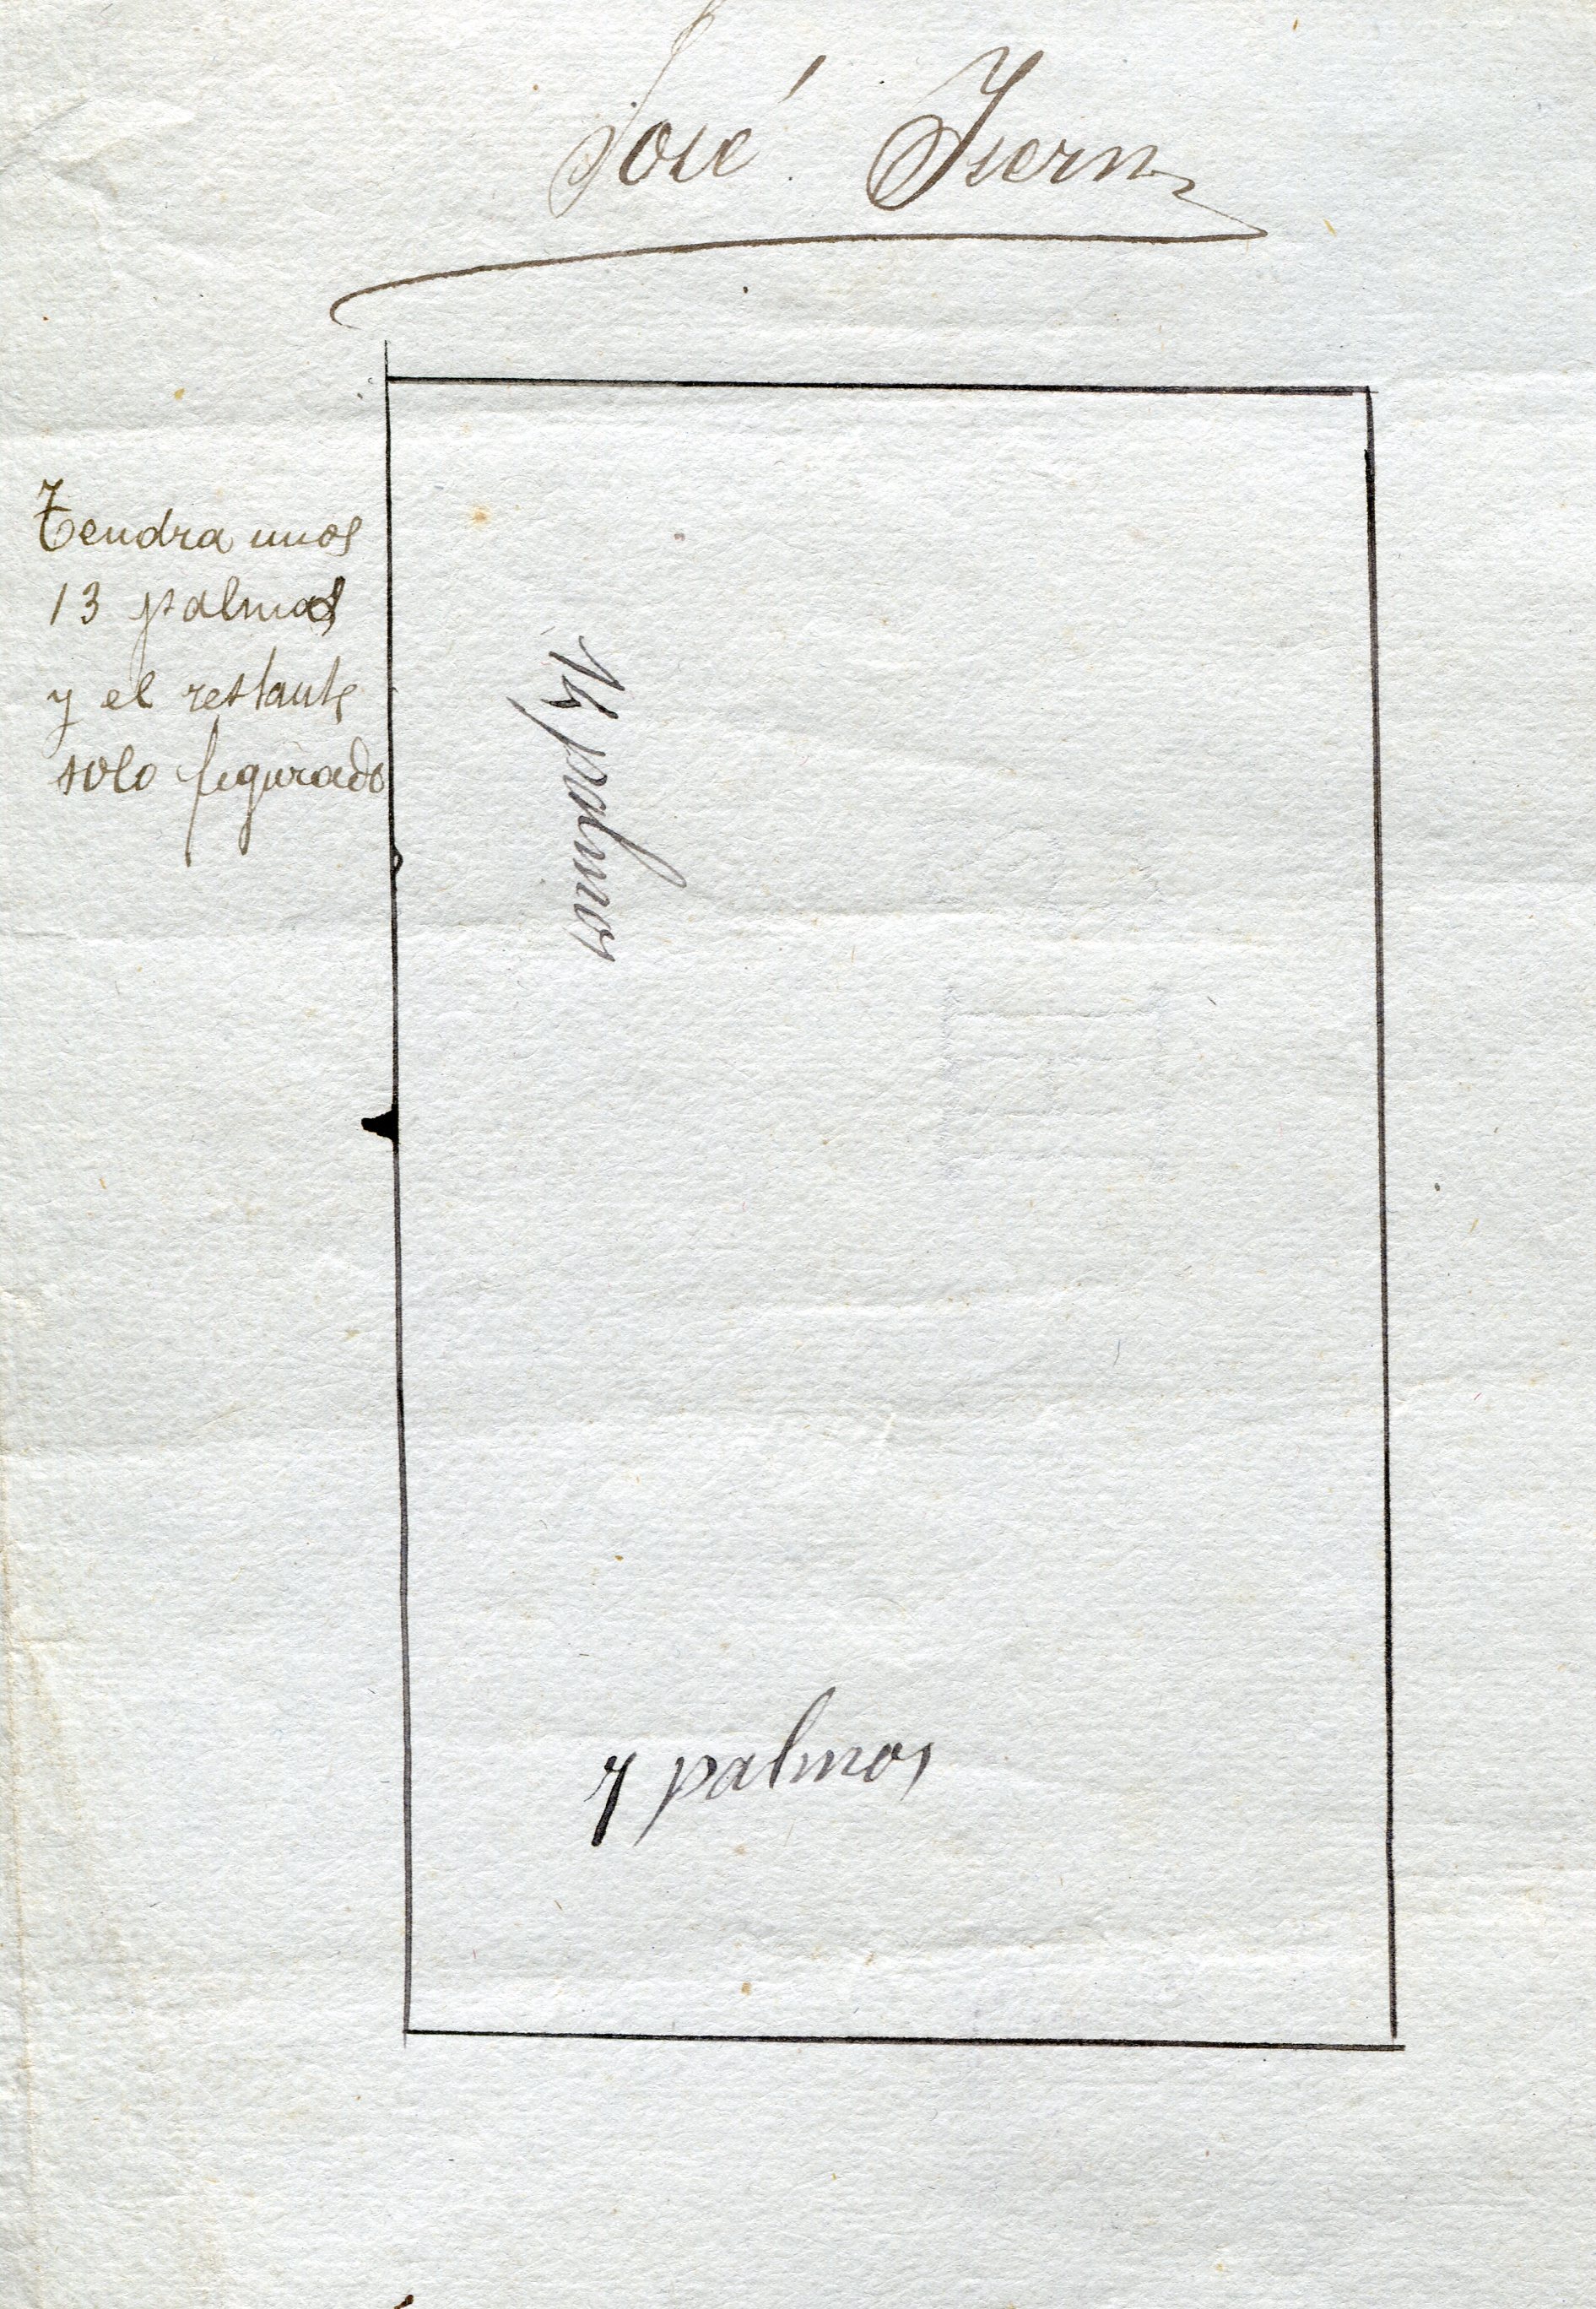 José Isern
Tendra unos
13 palmos
y el restante
solo figurado
14 palmos
7 palmos